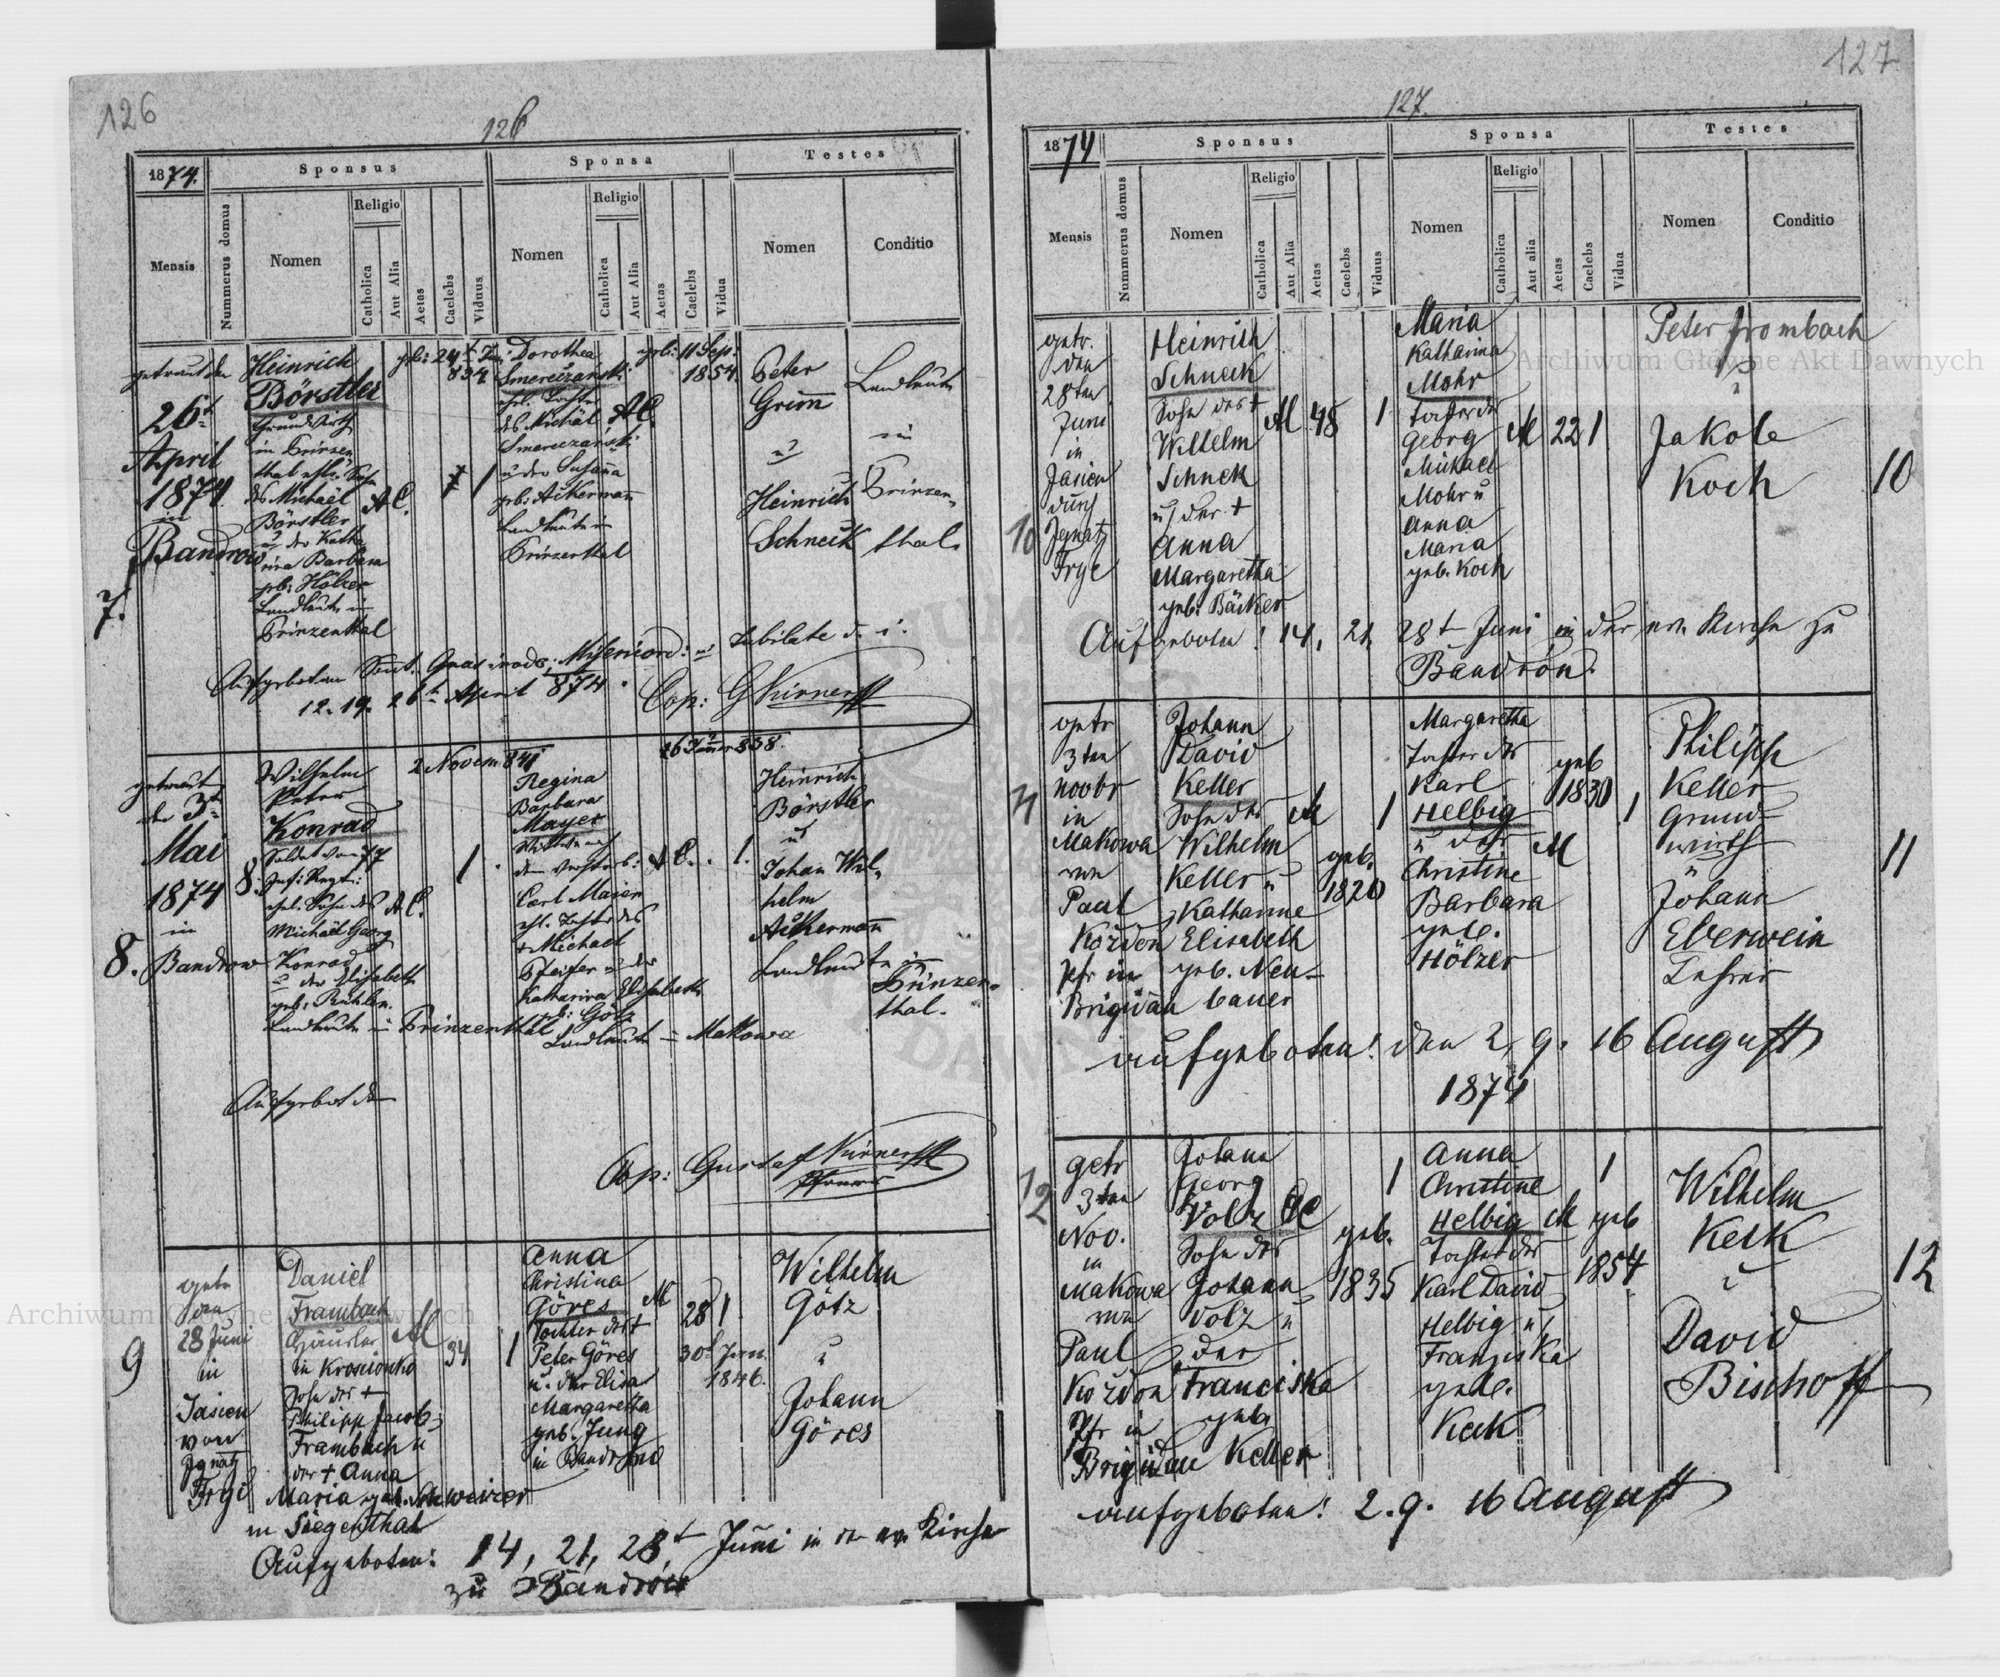 126
126
1874.
Sponsus
Sponsa
Testes
Mensis
Nummerus domus
Nomen
Religio
Catholica
Aut Alia
Aetas
Caelebs
Viduus
Nomen
Religio
Catholica
Aut Alia
Aetas
Caelebs
Vidua
Nomen
Conditio
7.
getraut den
26t
April
1874
in
Bandrow
Heinrich
Börstler
Grundwirth
in Prinzen
thal ehl. Sohn
des Michael
Börstler
u der Katha
rina Barbara
geb: Hölzer
Landleute in
Prinzenthal
A.C.
geb: 24t
834
1
Dorothea
Smereczanski
ehl. Tochter
des Michäl
Smereczanski
u der Susanna
geb: Ackermann
Landleute in
Prinzenthal
A.C.
geb: 11 Sep:
1854
Peter
Grim
u
Heinrich
Schneck
Landleute
in
Prinzen
thal.
Aufgeboten Sont. Quasimodo; Misericord: u: Jubilate d. i.
12. 19. 26t April 874.
Cop:
8.
getraut
3t
Mai
1874
in
Bandrow
8.
Wilhelm
Peter
Konrad
Soldat vom 77
Inf: Regt:
ehl. Sohn des
Michäel Georg
Konrad
u der Elisabeth
geb:
Landleute in Prinzenthal
A.C.
2 Novem 841
1.
Regina
Barbara
Mayer
Wittwe
Carl Maier
ehl. Tochter des
+ Michael
Pfeifer u der
Katharina Elisabeth
geb: Götz
Landleute in Makowa
A.C.
16 Jänner 838.
1.
Heinrich
Börstler
u
Johan Wil-
helm
Ackermann
Landleute in
Prinzen-
thal.
Aufgebot den
Cop: Gustaf
Pfarrer
9
getr
den
28 Juni
in
Jasien
von
Ignatz
Frye
Daniel
Frambach
Häusler
in Kroscionko
Sohn des +
Philipp Jacob
Frambach u
der + Anna
Maria geb.
in Siegenthal
34
1
Anna
Christina
Göres
Tochter des +
Peter Göres
u. der Elisa
Margaretha
geb. Jung
in Bandrow
28 1
30t Jann.
1846.
Wilhelm
Götz
u
Johann
Göres
Aufgeboten: 14, 21, 28t Juni in der ev. Kirche
zu Bandrow
127
127.
1874
Sponsus
Sponsa
Testes
Mensis
Nummerus domus
Nomen
Religio
Catholica
Aut Alia
Aetas
Caelebs
Viduus
Nomen
Religio
Catholica
Aut alia
Aetas
Caelebs
Vidua
Nomen
Conditio
10
getr.
den
28ten
Juni
in
Jasien
durch
Ignatz
Frye
Heinrich
Schneck
Sohn des +
Wilhelm
Schneck
u der +
Anna
Margaretha
geb. Bäcker
48
1
Maria
Katharina
Mohr
Tochter des
Georg
Michael
Mohr u
Anna
Maria
geb. Koch
22 1
Peter Frombach
u
Jakob
Koch
10
Aufgeboten! 14, 21, 28t Juni in der ev. Kirche zu
Bandrow.
11
getr
3ten
novbr
in
Makowa
von
Paul
Kozdon
Pfr in
Brigidau
Johann
David
Keller
Sohn des
Wilhelm
Keller u
Katharine
Elisabeth
geb. Neu-
bauer
1
geb.
1820
Margaretha
Tochter des
Karl
Helbig
u der
Christine
Barbara
geb.
Hölzer
geb
1830
1
Philipp
Keller
Grund-
wirth
u
Johann
Eberwein
Lehrer
11
aufgeboten! den 2, 9. 16 August
1874
12
getr
3ten
Nov.
in
Makowa
von
Paul
Kozdon
Pfr in
Brigidau
Johann
Georg
Volz
Sohn des
Johann
Volz u
der
Franciska
geb.
Keller
1
geb.
1835
Anna
Christine
Helbig
Tochter des
Karl David
Helbig u
Franziska
geb.
Keck
1
geb
1854
Wilhelm
Keck
u
David
Bischoff
12
aufgeboten! 2. 9. 16 August
Archiwum Główne Akt Dawnych
Archiwum Główne Akt Dawnych